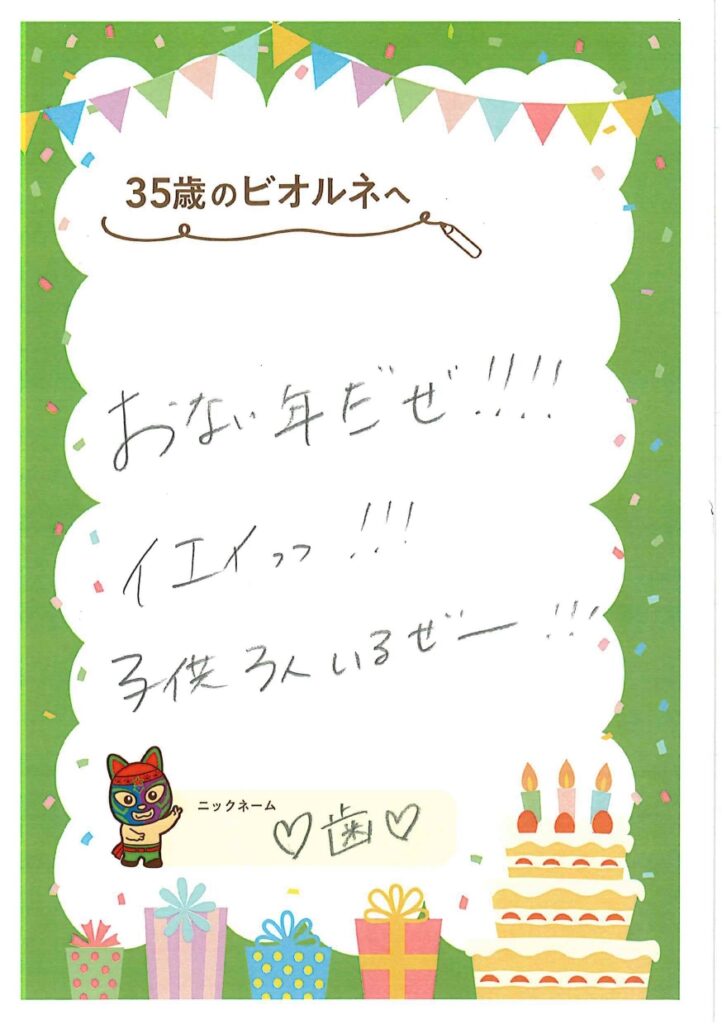 35歳のビオルネへ
おない年だぜ!!!!
イエイっっ!!!
子供3人いるぜー!!!
ニックネーム
♡歯♡